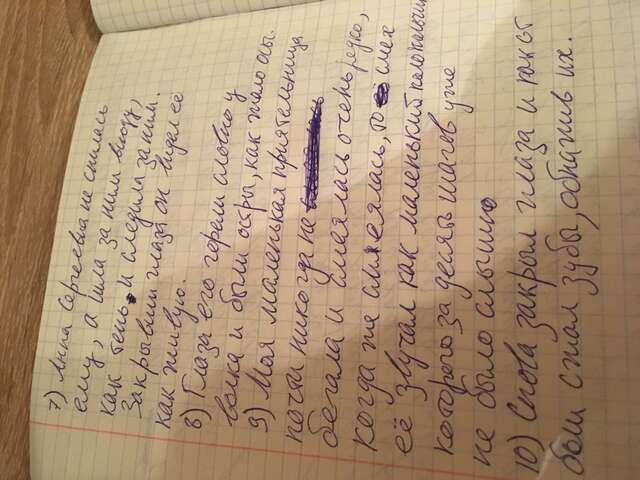 7) Анна Сергеевна не снилась
ему, а шла за ним всюду,
как тень и следила за ним.
Закрывши глаза он видел её
как живую.
8) Глаза его горели словно у
волка и были остры, как жало осы.
9) Моя маленькая приятельница
почти никогда не
бегала и смеялась очень редко,
когда же смеялась, то смех
её звучал как маленький колокольчик
которого за десять шагов уже
не было слышно
10) Снова закрыл глаза и как бы
сжал зубы, обнажив их.